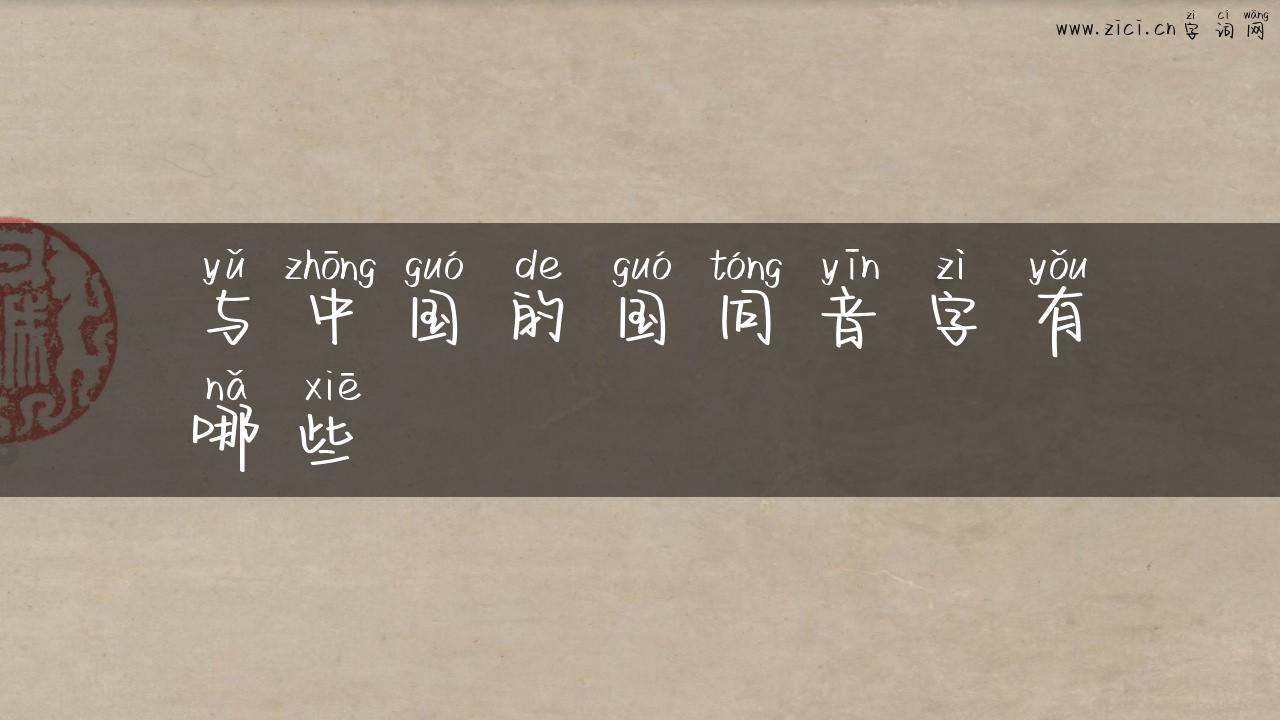 zì cí wǎng
www.zici.cn字词网
yǔ zhōng guó de guó tóng yīn zì yǒu
与中国的国同音字有
nǎ xiē
哪些